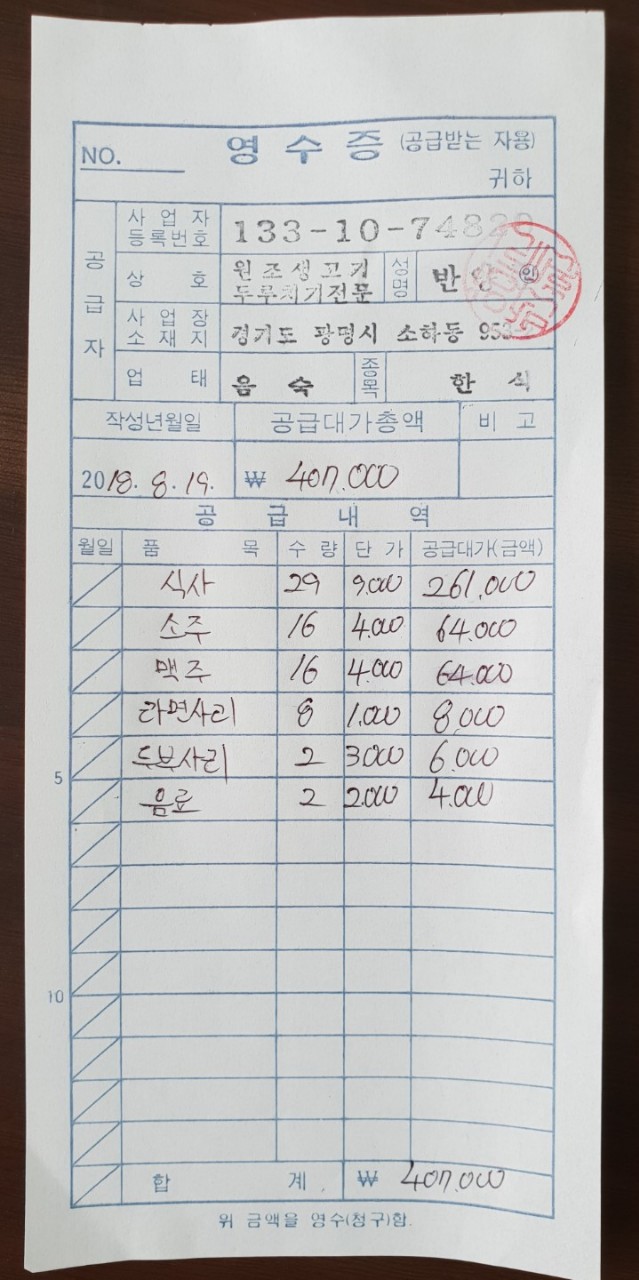 NO. 영 수 증 (공급받는 자용)
귀하
공급자
사업자등록번호 133-10-74820
상 호 원조생고기 두루치기전문 성명 반 인
사업장소재지 경기도 광명시 소하동 953
업 태 음 숙 종목 한 식
작성년월일 공급대가총액 비 고
2018. 8. 19. ₩ 407.000
공 급 내 역
월일 품 목 수 량 단 가 공급대가(금액)
식사 29 9.000 261.000
소주 16 4.000 64.000
맥주 16 4.000 64.000
라면사리 8 1.000 8.000
두부사리 2 3000 6.000
5
음료 2 2.000 4.000
10
합 계 ₩ 407.000
위 금액을 영수(청구)함.